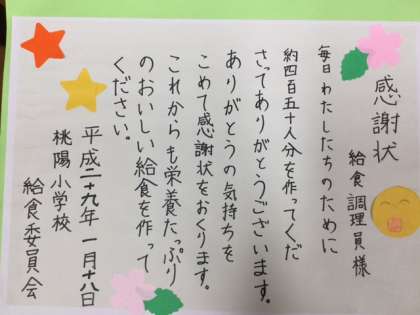 感謝状
給食調理員様
毎日わたしたちのために
約四百五十人分を作ってくだ
さってありがとうございます。
ありがとうの気持ちを
こめて感謝状をおくります。
これからも栄養たっぷり
のおいしい給食を作って
ください。
平成二十九年 一月十八日
桃陽小学校
給食委員会